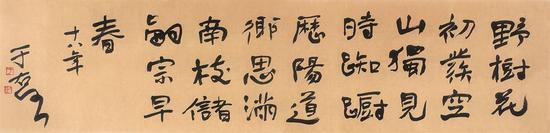 野樹花
初發空
山獨見
時踟躕
歷陽道
鄉思滿
南枝儲
嗣宗早
春
十八年
于右任